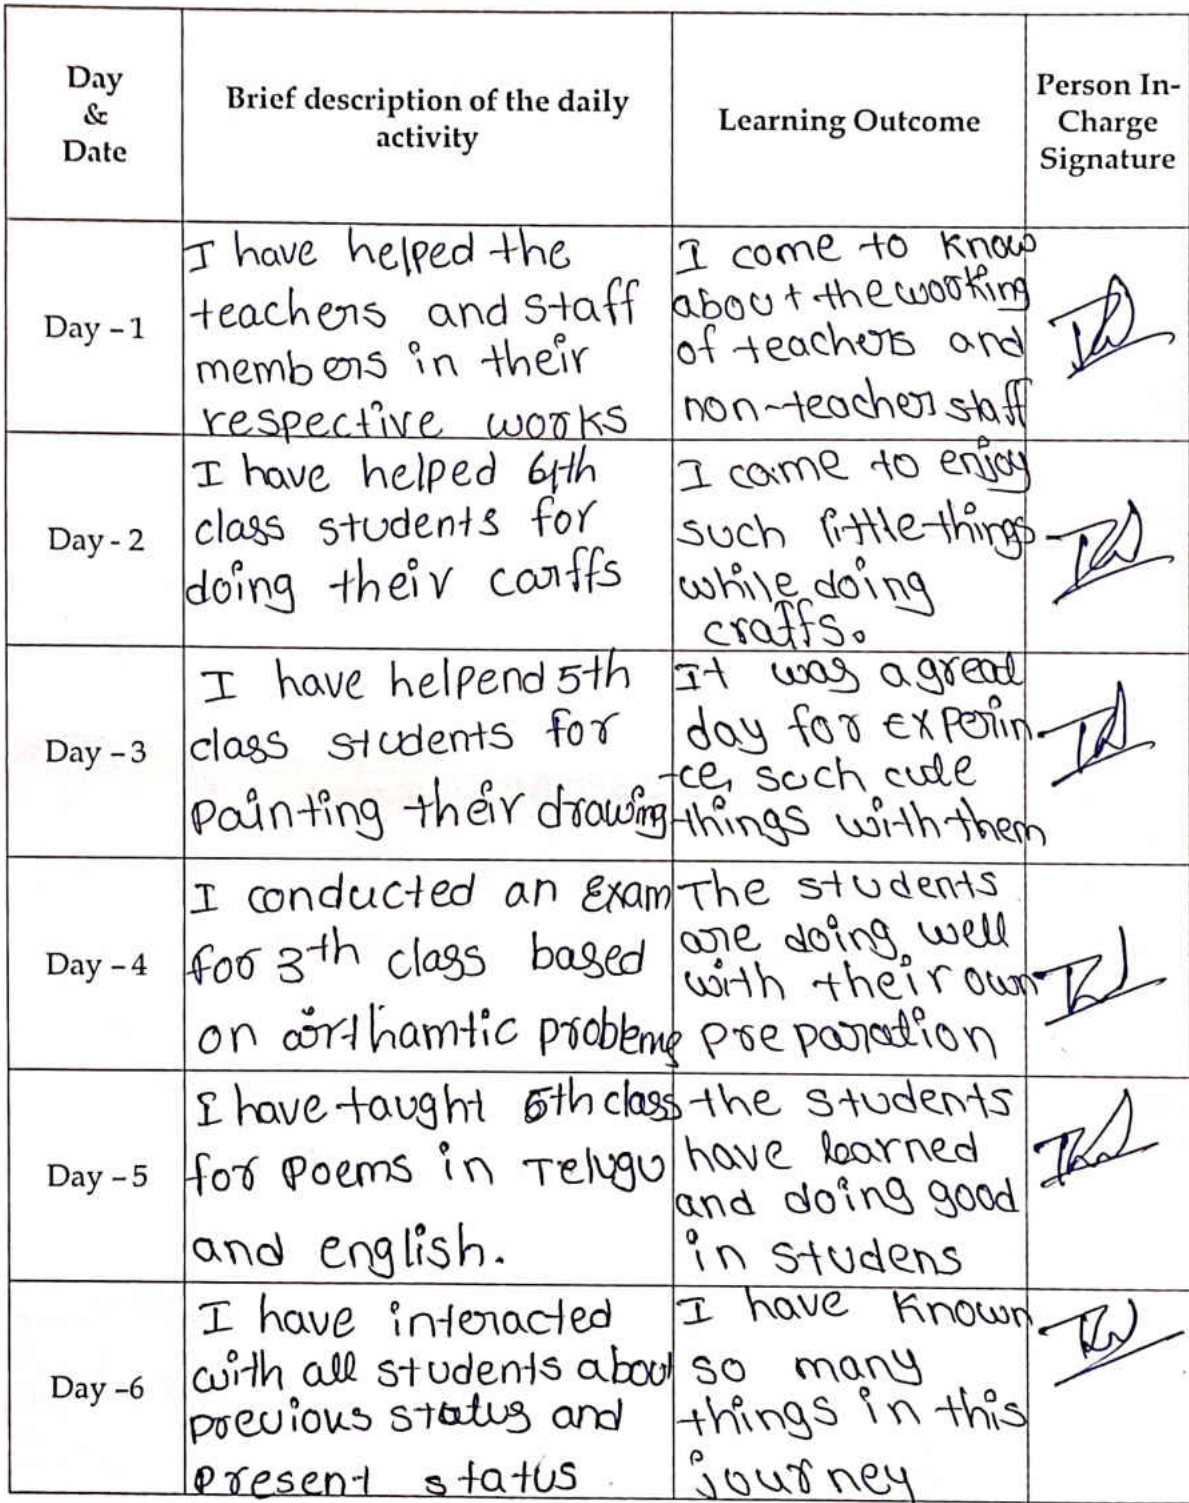 Day
&
Date
Brief description of the daily
activity
Learning Outcome
Person In-
Charge
Signature
Day – 1
I have helped the
teachers and staff
members in their
respective works
I come to know
about the working
of teachers and
non-teacher staff
Day - 2
I have helped 6th
class students for
doing their carffs
I came to enjoy
such little things
while doing
craffs.
Day – 3
I have helpend 5th
class students for
painting their drawing
It was a gread
day for experin
-ce, such cude
things with them
Day – 4
I conducted an exam
for 3th class based
on airthamtic probleme
The students
are doing well
with their own
preparation
Day – 5
I have taught 5th class
for poems in Telugu
and english.
the students
have learned
and doing good
in studens
Day –6
I have interacted
with all students about
previous status and
present status
I have known
so many
things in this
journey